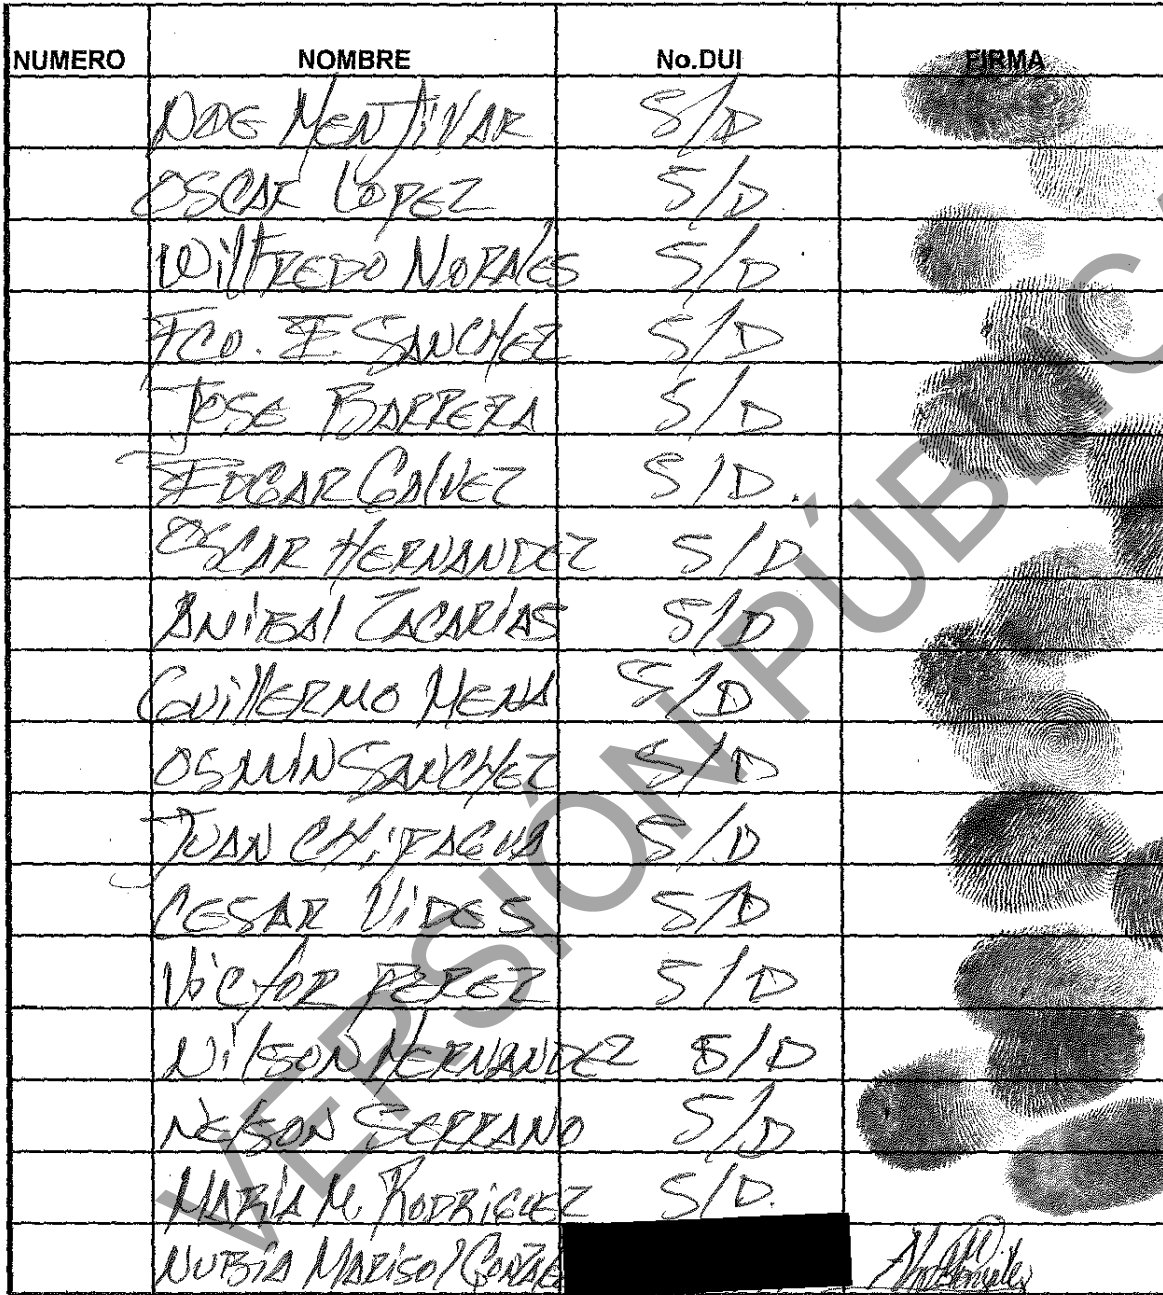 NUMERO NOMBRE No.DUI FIRMA
NOE MENJIVAR S/D
OSCAR LOPEZ S/D
WilFREDO MORAlES S/D
FCO. E. SANCHEZ S/D
JOSE BARRERA S/D
EDGAR GAlVEZ S/D.
OSCAR HERNANDEZ S/D
ANiBAl ZACARiAS S/D
GuillERMO MENA S/D
OSMiN SANCHEZ S/D
JUAN S/D
CESAR ViDES S/D
ViCtOR PEREZ S/D
NilSON HERNANDEZ S/D
NElSON SERRANO S/D
MARiA M. RODRiGUEZ S/D.
NUBiA MARiSOl
VERSIÓN PÚBLIC